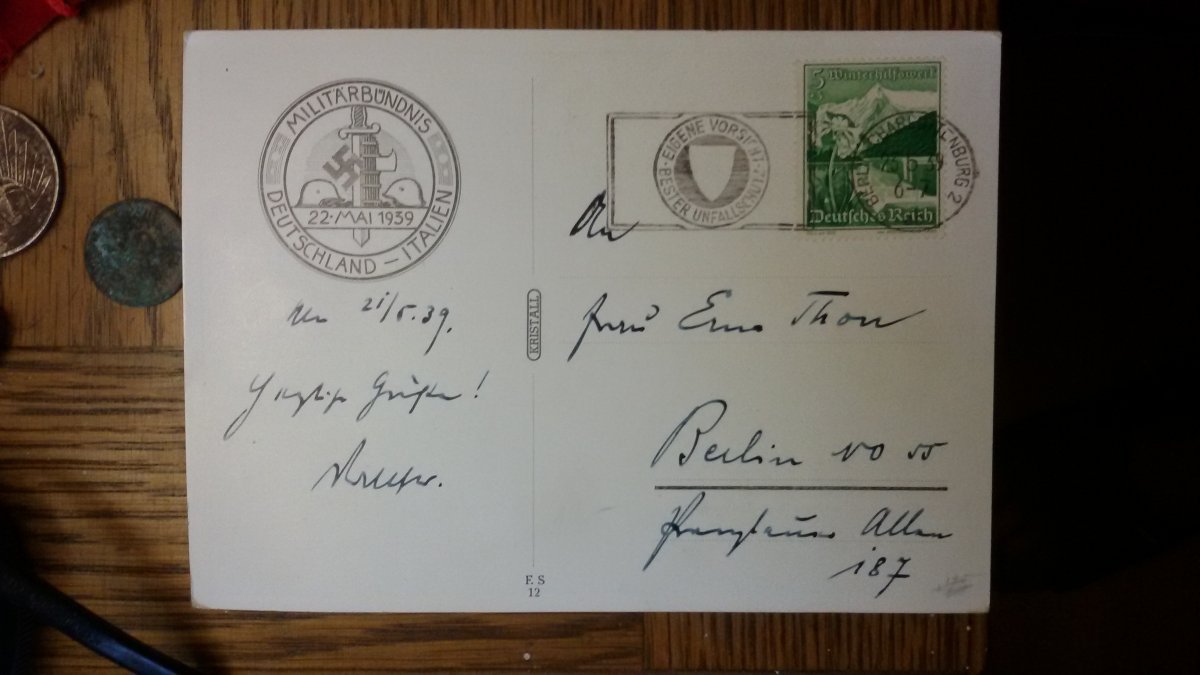 MILITÄRBÜNDNIS
22. MAI 1939
DEUTSCHLAND – ITALIEN
21/5.39.
Herzliche Grüße!
KRISTALL
F. S
12
EIGENE VORSICHT
BESTER UNFALLSCHUTZ
5 Winterhilfswerk
BERLIN-CHARLOTTENBURG 2
Deutsches Reich
An
Frau Erna Thon
Berlin NO 55
Allee
187